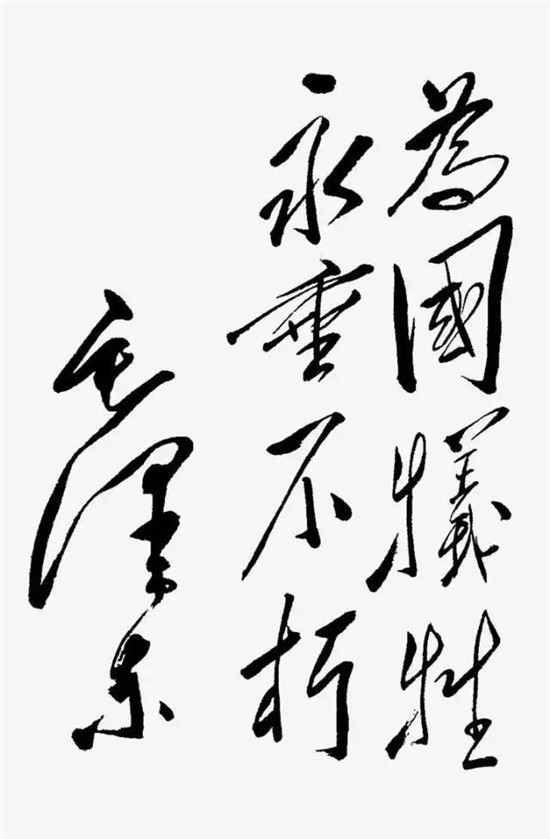 為國犠牲
永垂不朽
毛澤东